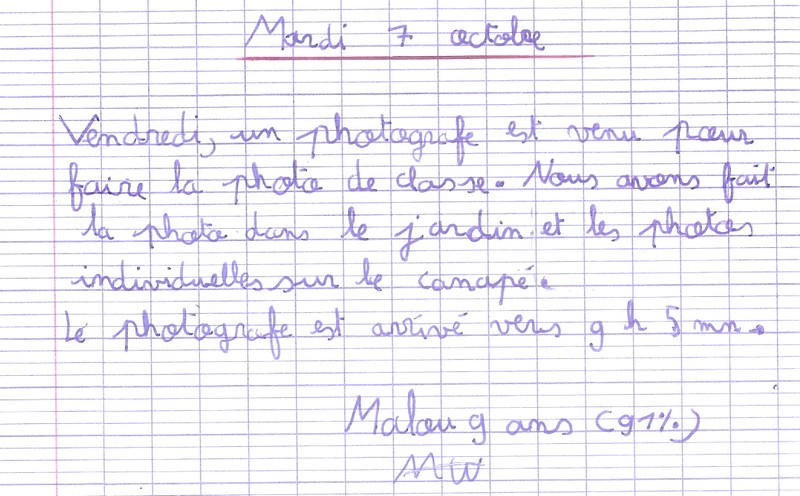 Mardi 7 octobre
Vendredi, un photografe est venu pour
faire la photo de classe. Nous avons fait
la photo dans le jardin et les photos
individuelles sur le canapé.
Le photografe est arrivé vers 9 h 5 mn.
Malou 9 ans (91%)
MW